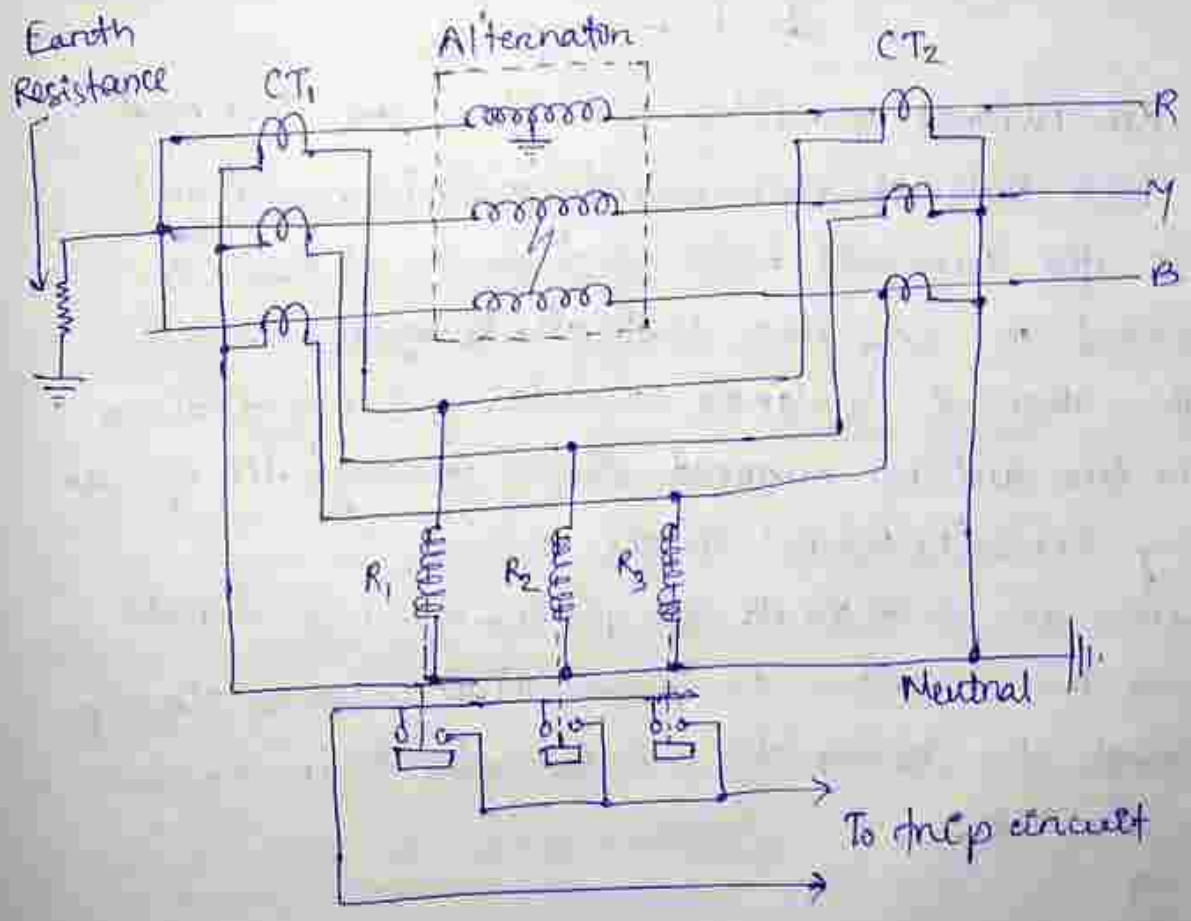 Earth
Resistance
CT₁
Alternator
CT₂
R
Y
B
R₁
R₂
R₃
Neutral
To trip circuit